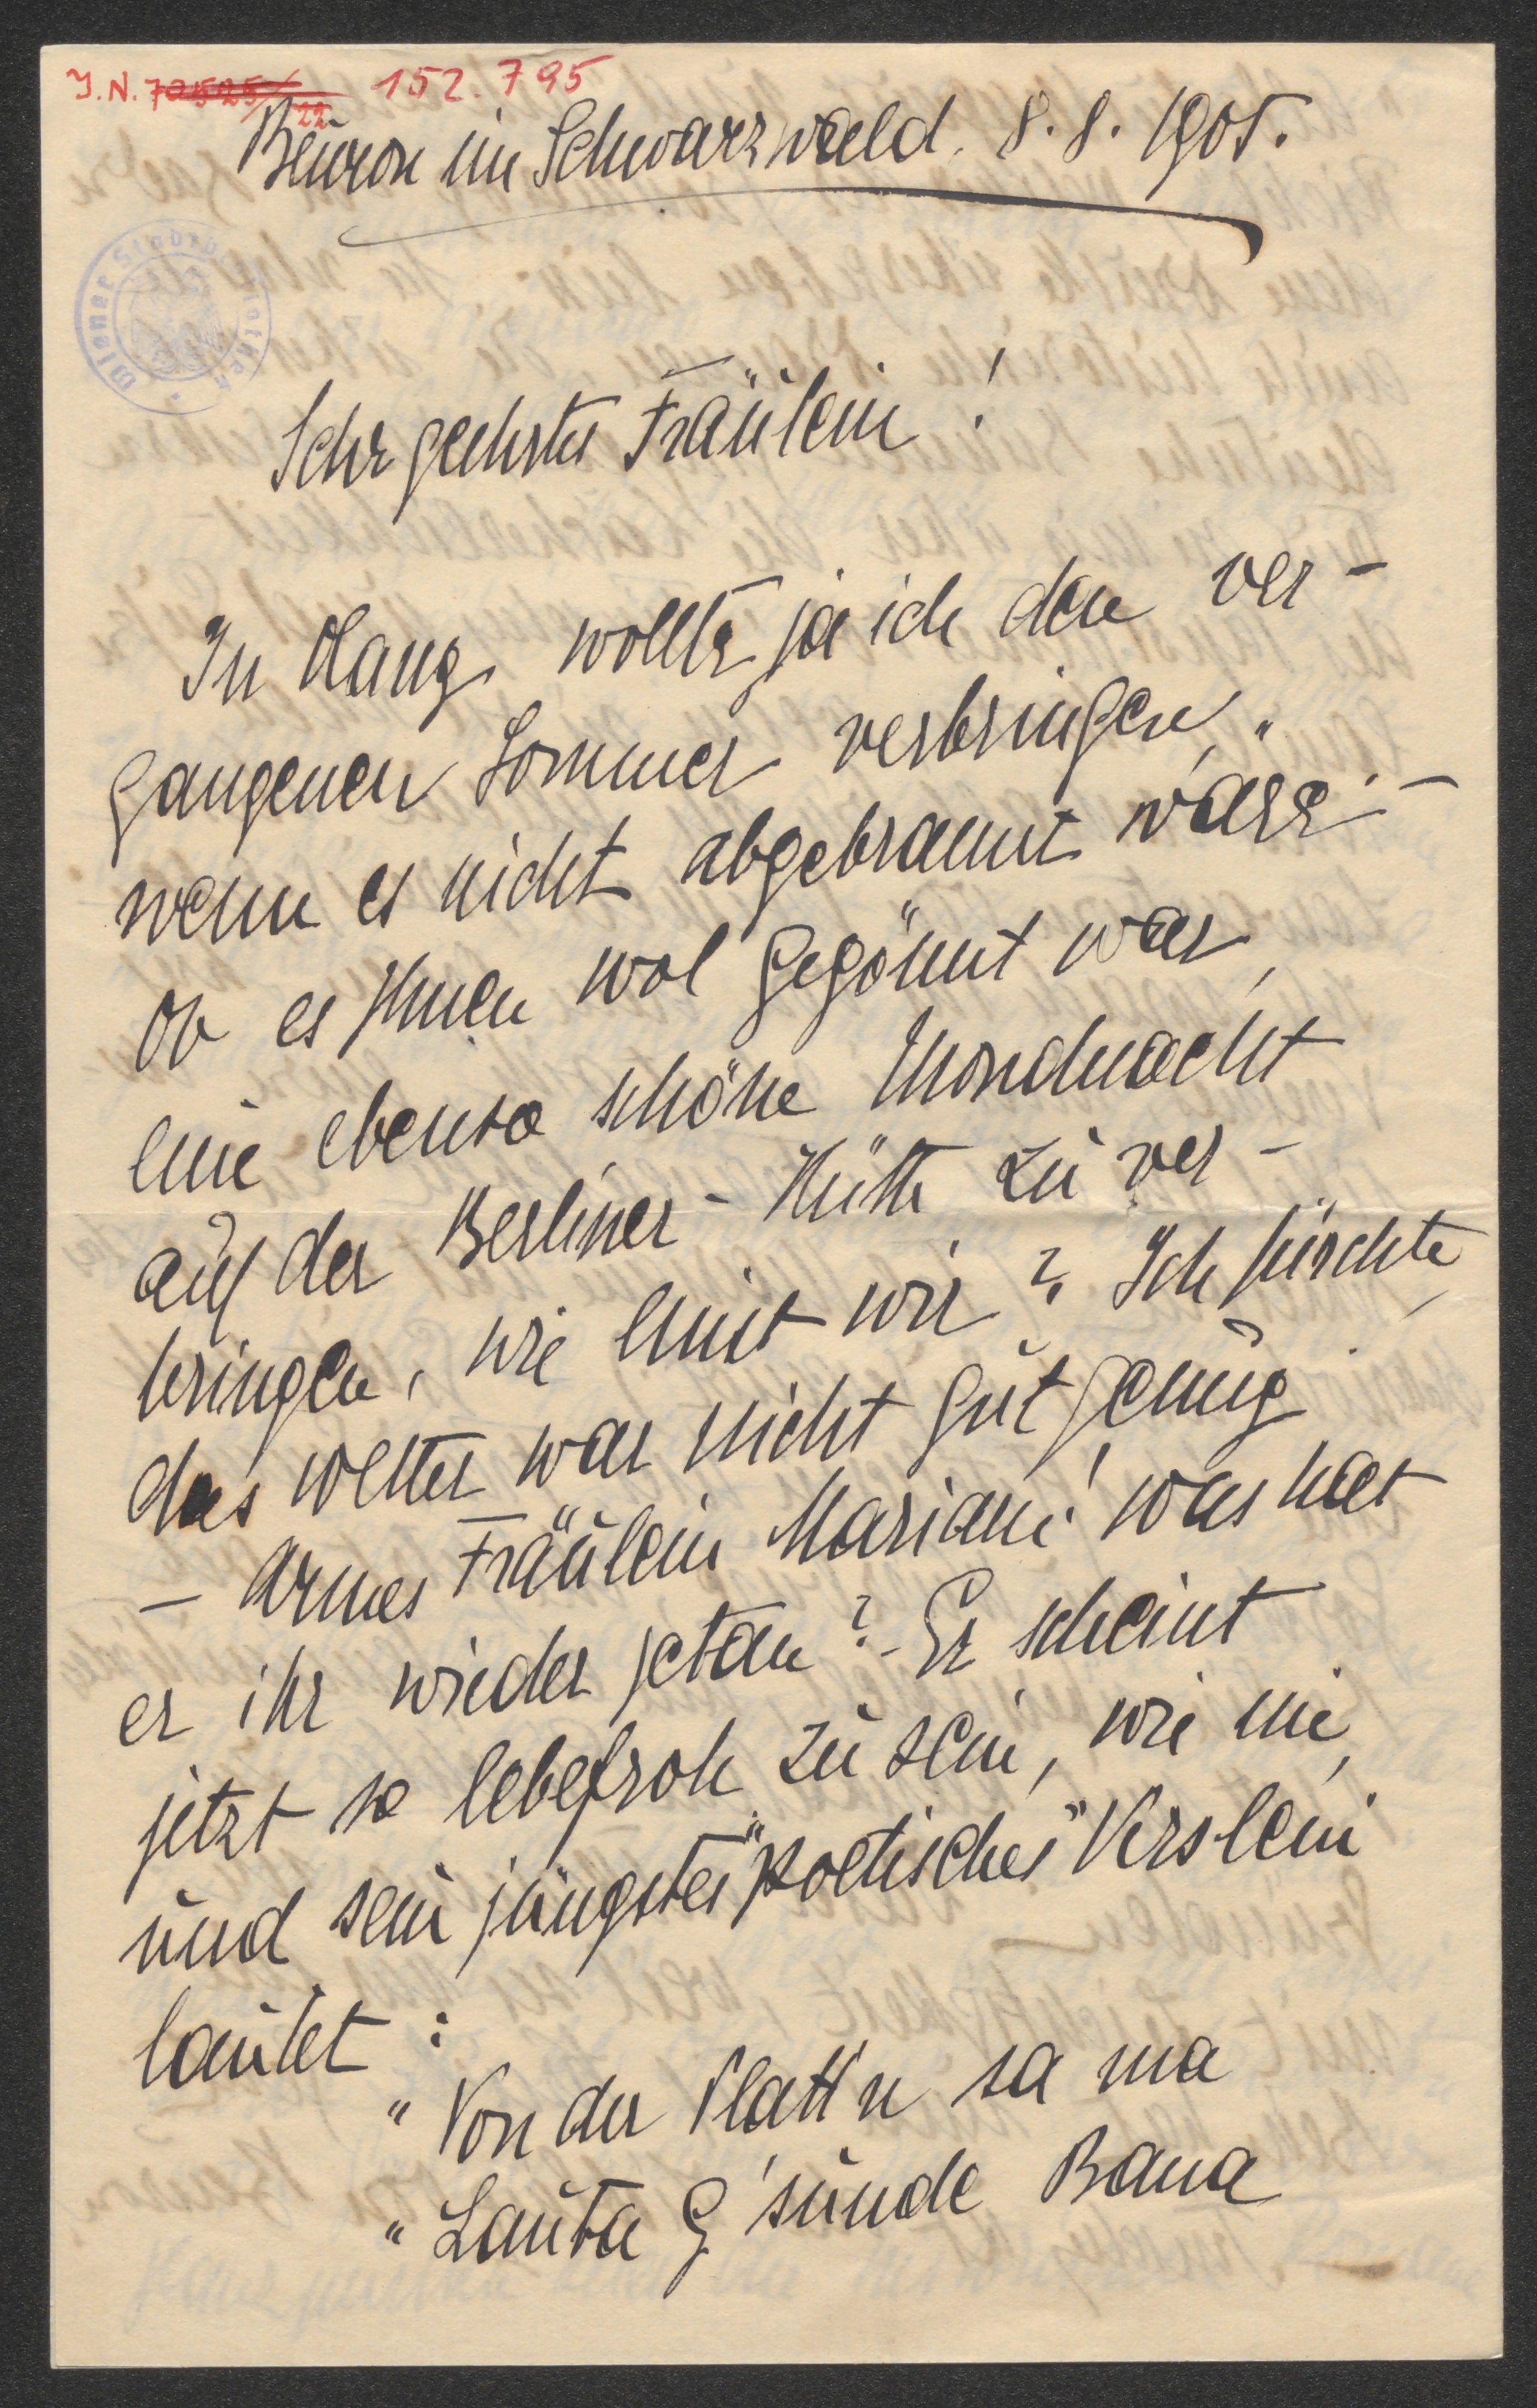 I.N. 70525/22 152.795
Beuron im Schwarzwald. 8.8.1905.
Wiener Stadtbibliothek
Sehr geehrtes Fräulein!
In Olang wollte ja ich den ver-
gangenen Sommer verbringen,
wenn es nicht abgebrannt wäre. –
Ob es Ihnen wol gegönnt war,
eine ebenso schöne Mondnacht
auf der Berliner-Hütte zu ver-
bringen, wie einst wir? Ich fürchte,
das Wetter war nicht gut genug
– Armes Fräulein Mariane! was hat
er ihr wieder getan? – Er scheint
jetzt so lebefroh zu sein, wie nie,
und sein jüngstes "poetisches" Verslein
lautet:
"Von der Platt'n sa ma
"Lauta G'sunde Bana